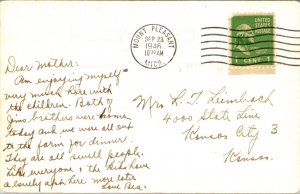 MOUNT PLEASANT
SEP 23
10 30 AM
1946
MICH.
UNITED STATES
POSTAGE
1 CENT 1
Dear Mother:
Am enjoying myself
very much here with
the children. Both of
Jim's brothers were home
today and we were all out
to the farm for dinner.
They are all swell people.
Like everyone & the kids have
a lovely apt. here more later
Love Bea.
Mrs L. T. Leimbach
4000 State Line
Kansas City 3
Kansas.